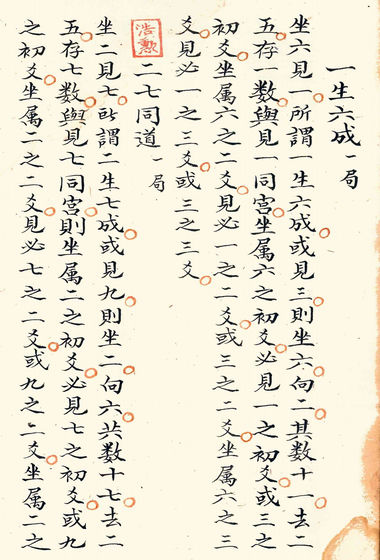 一生六成一局
坐六見一所謂一生六成或見三則坐六向二其數十一去二
五存一數與見一同宮坐属六之初爻必見一之初爻或三之
初爻坐属六之二爻見必一之二爻或三之二爻坐属六之三
爻見必一之三爻或三之三爻
浩勲
二七同道一局
坐二見七所謂二生七成或見九則坐二向六共数十七去二
五存七数與見七同宮則坐属二之初爻必見七之初爻或九
之初爻坐属二之二爻見必七之二爻或九之二爻坐属二之